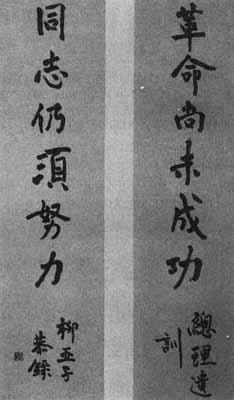 革命尚未成功
總理遺
訓
同志仍須努力
柳亞子
恭錄